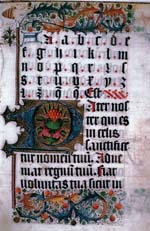 A a b c d e
f g h i k l m
n o p q r
Est
PAter nos
ter qui es
in celis
sanctifice
tur nomen tuū. Adue
niat regnū tuū. fiat
voluntas tua sicut in